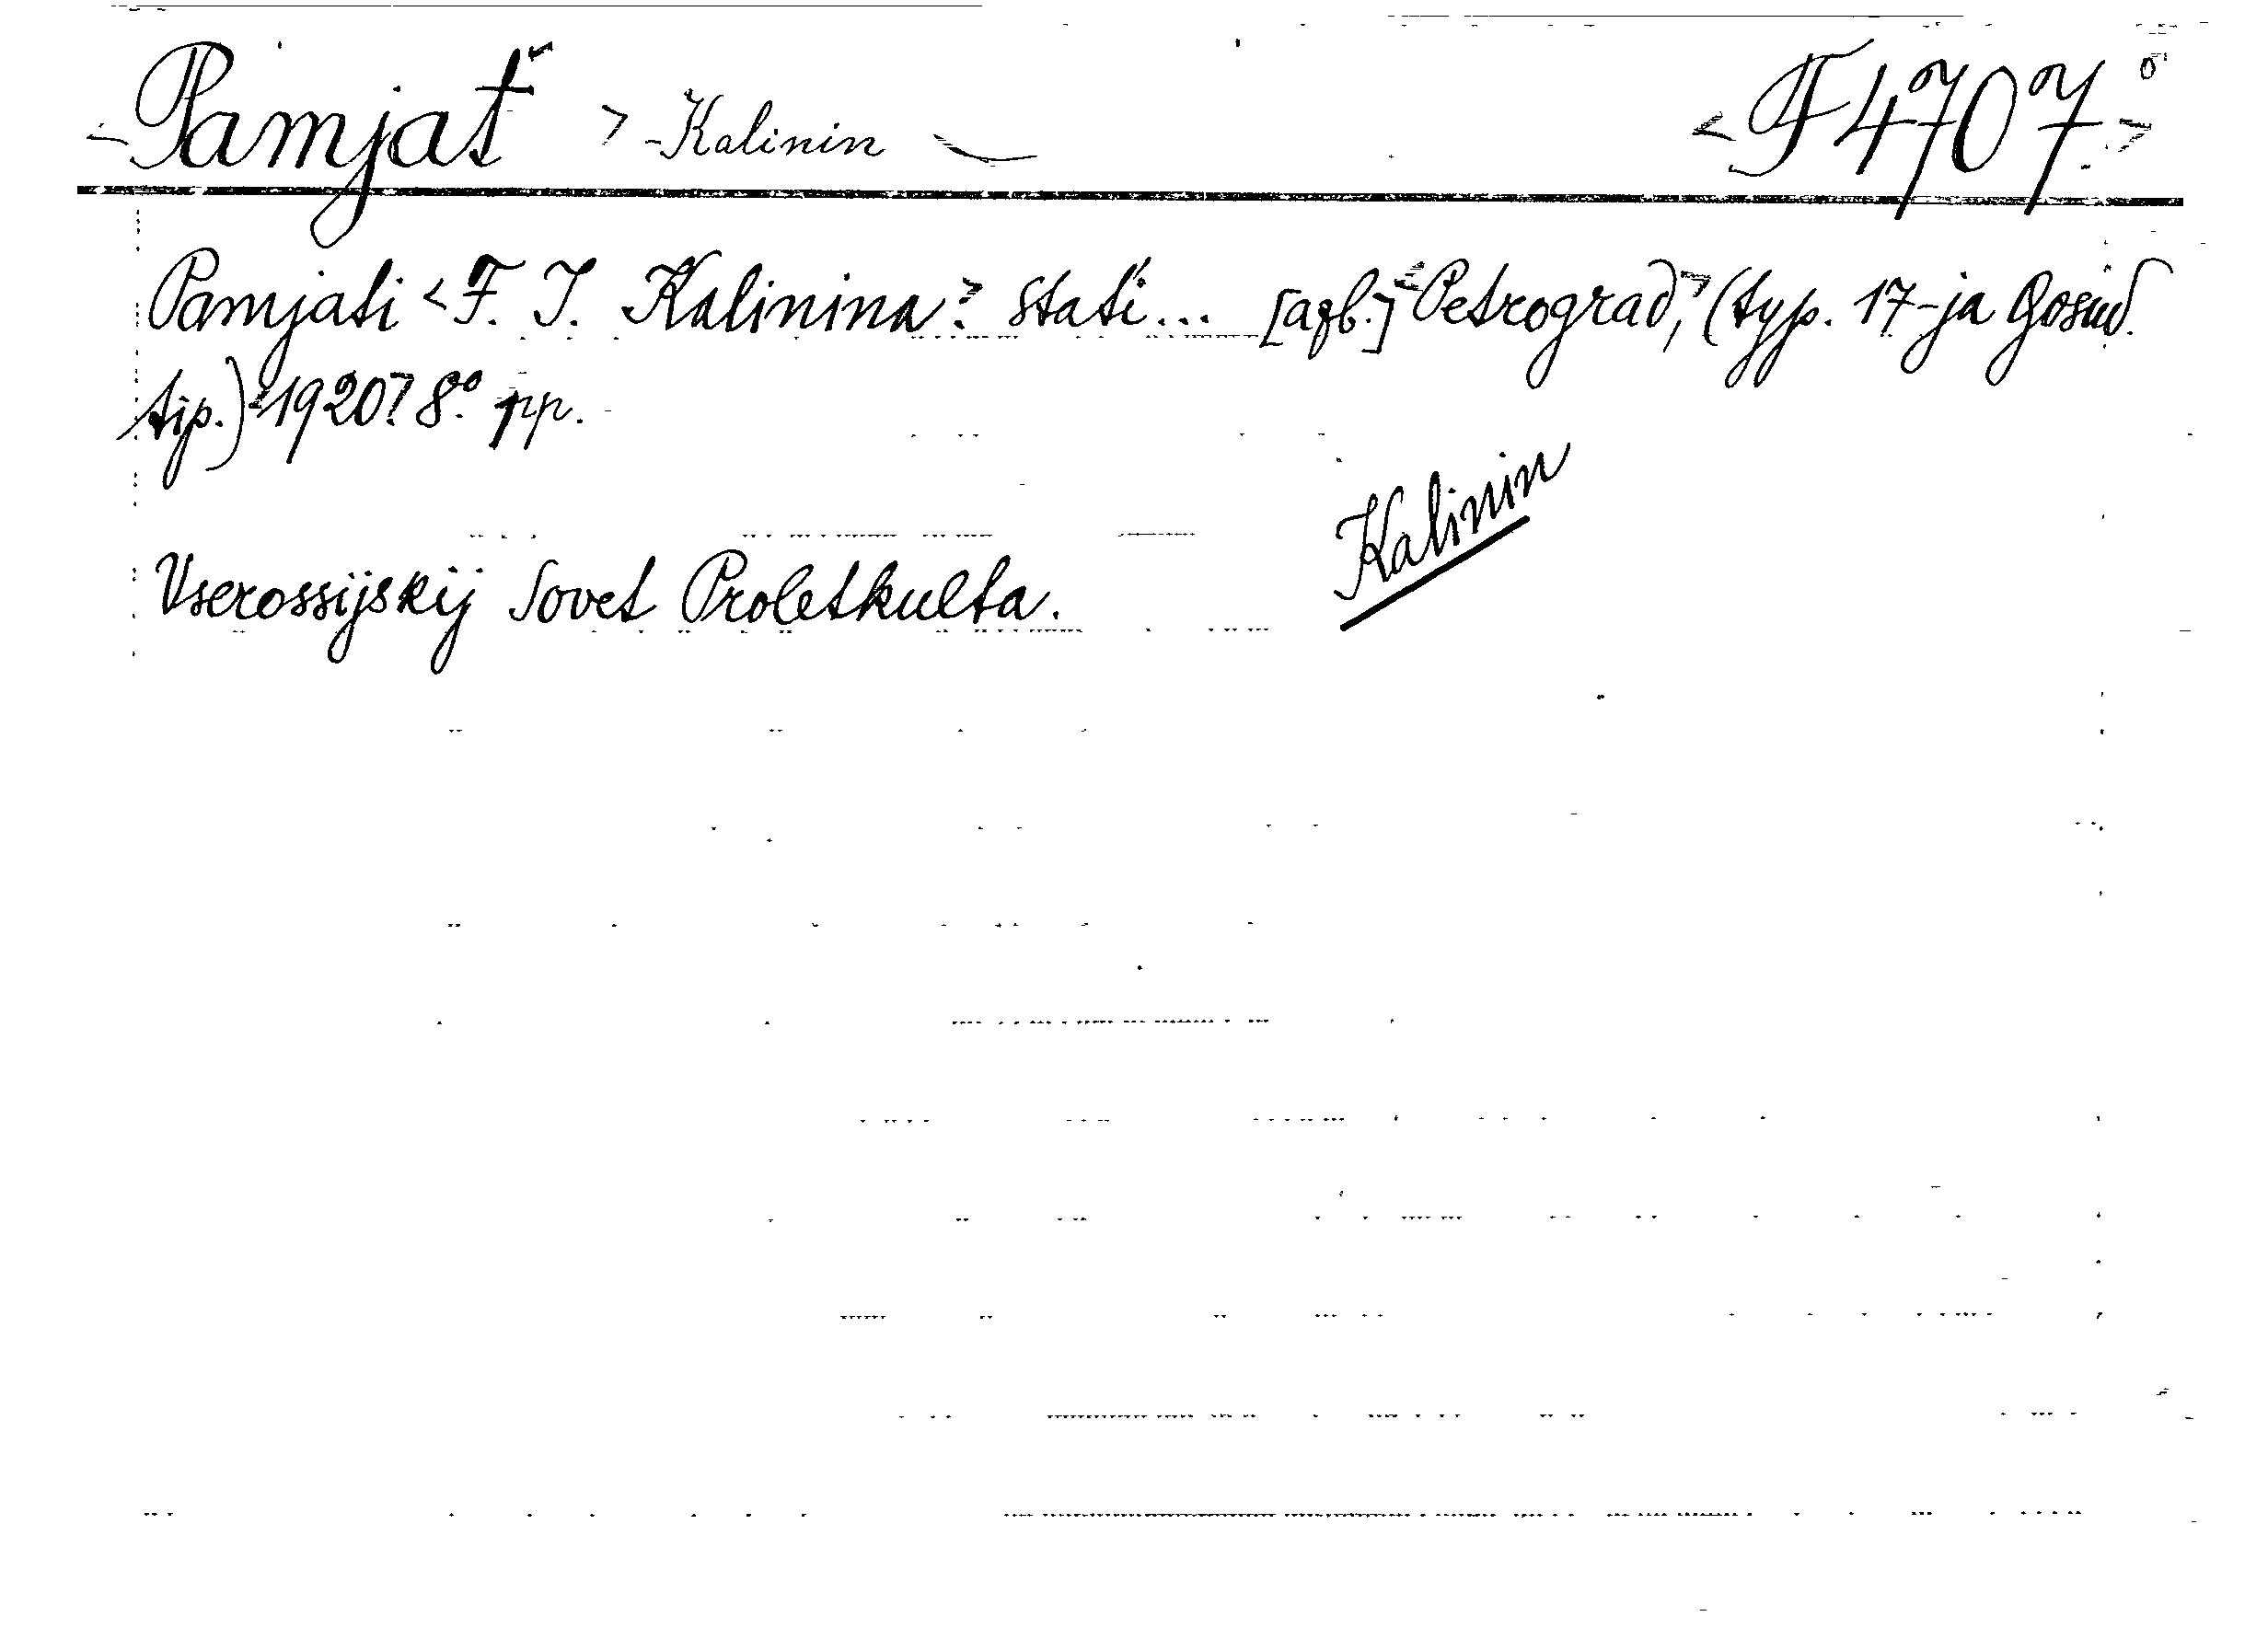 Pamjat' > Kalinin <F 4707.>
Pamjati <F. I. Kalinina.> Stati... [azb.] <Petrograd,> (typ. 17-ja Gosud.
tip.) <1920.> 8.° pp.
Kalinin
Vserossijskij Sovet Proletkulta.